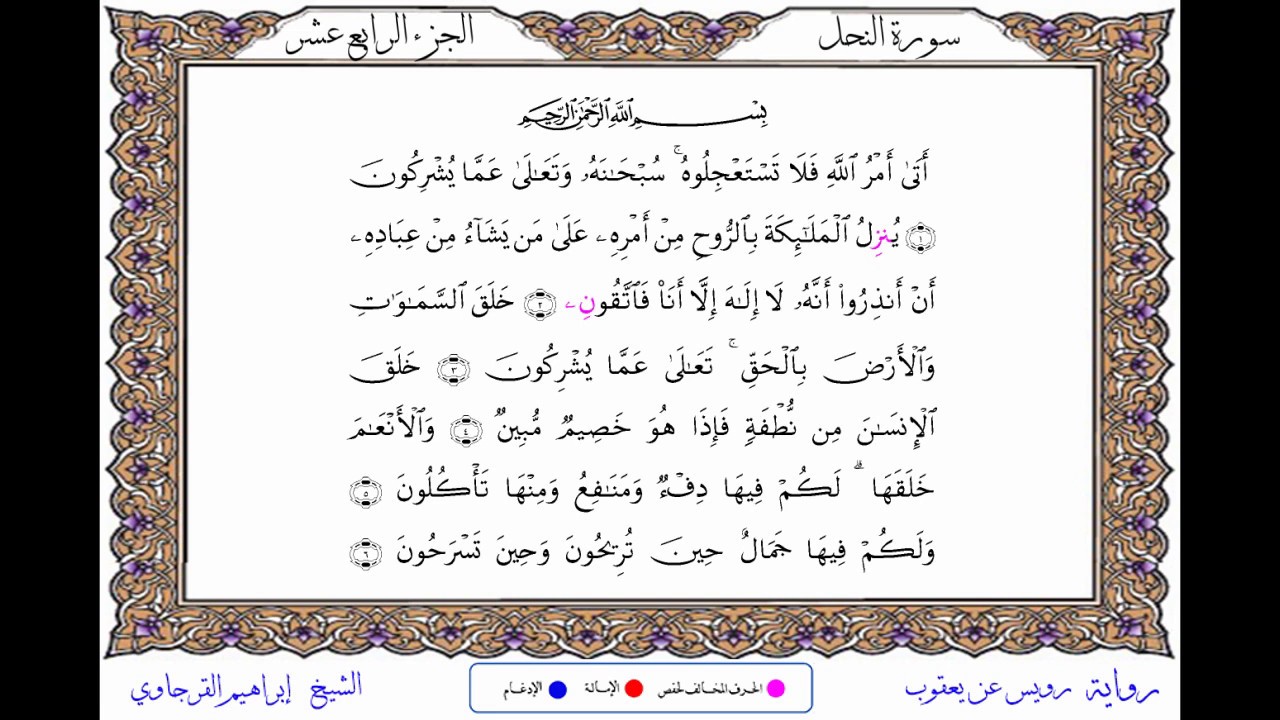 سورة النحل
الجزء الرابع عشر
بِسْمِ ٱللَّهِ ٱلرَّحْمَٰنِ ٱلرَّحِيمِ
أَتَىٰٓ أَمْرُ ٱللَّهِ فَلَا تَسْتَعْجِلُوهُ ۚ سُبْحَٰنَهُۥ وَتَعَٰلَىٰ عَمَّا يُشْرِكُونَ
١ يُنزِلُ ٱلْمَلَٰٓئِكَةَ بِٱلرُّوحِ مِنْ أَمْرِهِۦ عَلَىٰ مَن يَشَآءُ مِنْ عِبَادِهِۦ
أَنْ أَنذِرُوٓا۟ أَنَّهُۥ لَآ إِلَٰهَ إِلَّآ أَنَا۠ فَٱتَّقُونِۦ ٢ خَلَقَ ٱلسَّمَٰوَٰتِ
وَٱلْأَرْضَ بِٱلْحَقِّ ۚ تَعَٰلَىٰ عَمَّا يُشْرِكُونَ ٣ خَلَقَ
ٱلْإِنسَٰنَ مِن نُّطْفَةٍ فَإِذَا هُوَ خَصِيمٌ مُّبِينٌ ٤ وَٱلْأَنْعَٰمَ
خَلَقَهَا ۗ لَكُمْ فِيهَا دِفْءٌ وَمَنَٰفِعُ وَمِنْهَا تَأْكُلُونَ ٥
وَلَكُمْ فِيهَا جَمَالٌ حِينَ تُرِيحُونَ وَحِينَ تَسْرَحُونَ ٦
رواية رويس عن يعقوب
الحرف المخالف لحفص الإمالة الإدغام
الشيخ إبراهيم القرجاوي